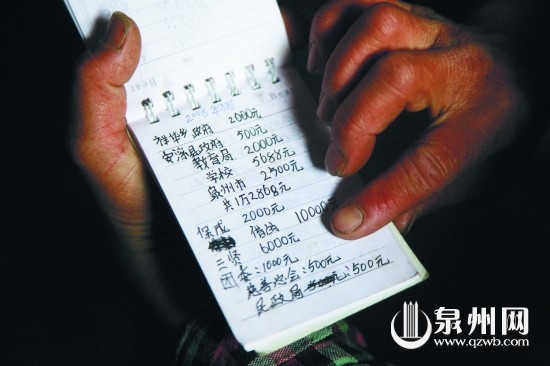 Bear
Bear
2000元
安溪县政府 500元
教育局 2000元
学校 5688元
泉州市 2500元
共1万2868元
保成 2000元
借的 10000元
三贤 6000元
团委:1000元
慈善总会:500元
民政局:500元
泉州网
www.qzwb.com